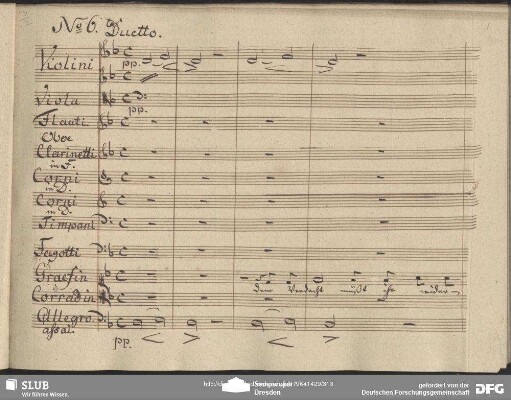 No 6. Duetto.
Violini
pp.
Viola
pp.
Flauti
Oboe
Clarinetti
in F.
Corni
in D.
Corni
in D.
Timpani
Fagotti
Graefin
dein Verdacht muß ihr
Corradin
Allegro
assai.
pp.
SLUB
Wir führen Wissen.
Dresden
gefördert von der
Deutschen Forschungsgemeinschaft
DFG